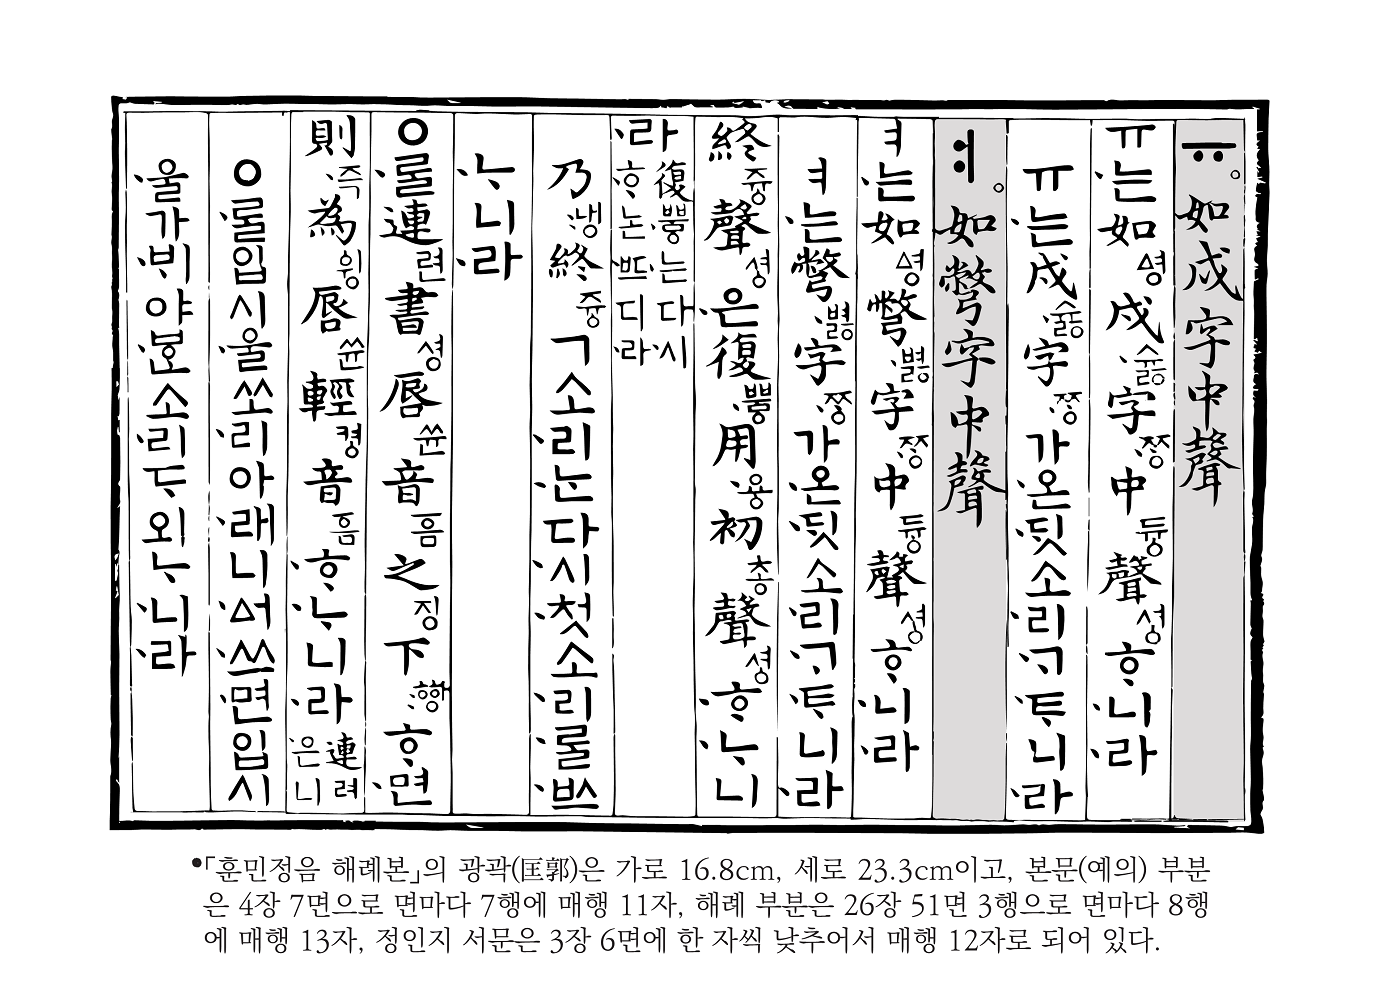 ㅠ。如戌字中聲
ㅠ·는如ᅀᅧᆼ戌·슗字·ᄍᆞᆼ中듕聲셩ᄒᆞ·니·라
ㅠ·는戌·슗字·ᄍᆞᆼ가·온·ᄃᆡᆺ소·리·ᄀᆞ·ᄐᆞ니·라
ㅕ。如彆字中聲
ㅕ·는如ᅀᅧᆼ彆·볋字·ᄍᆞᆼ中듕聲셩ᄒᆞ·니·라
ㅕ·는彆·볋字·ᄍᆞᆼ가·온·ᄃᆡᆺ소·리·ᄀᆞ·ᄐᆞ니·라
終즁聲셩·은復·뿧用·용初총聲셩·ᄒᆞ·ᄂᆞ니
·라復·뿧·는다·시·ᄒᆞ논·ᄠᅳ디·라
乃:냉終즁ㄱ소·리·ᄂᆞᆫ다·시·첫소·리·ᄅᆞᆯ·ᄡᅳ
·ᄂᆞ니·라
ㅇ·ᄅᆞᆯ連련書셩唇쓘音흠之징下:ᅘᅡᆼ·ᄒᆞ·면
則·즉為윙唇쓘輕켱音흠·ᄒᆞ·ᄂᆞ니·라連려·은니
ㅇ·ᄅᆞᆯ입시·울쏘·리아·래니·ᅀᅥ·쓰·면입시
·울가·ᄇᆡ야·ᄫᆞᆫ소·리ᄃᆞ외ᄂᆞ·니·라
•「훈민정음 해례본」의 광곽(匡郭)은 가로 16.8cm, 세로 23.3cm이고, 본문(예의) 부분
은 4장 7면으로 면마다 7행에 매행 11자, 해례 부분은 26장 51면 3행으로 면마다 8행
에 매행 13자, 정인지 서문은 3장 6면에 한 자씩 낮추어서 매행 12자로 되어 있다.